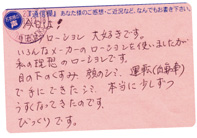 「通信欄」あなた様のご感想・ご近況など、なんでもお書き下さい。
声
ローション 大好きです。
いろんなメーカーのローションを使いましたが
私の理想のローションです。
目の下のくすみ、顔のシミ、運転(自動車)
で手にできたシミ、本当に少しずつ
うすくなってきたのです
びっくりです。